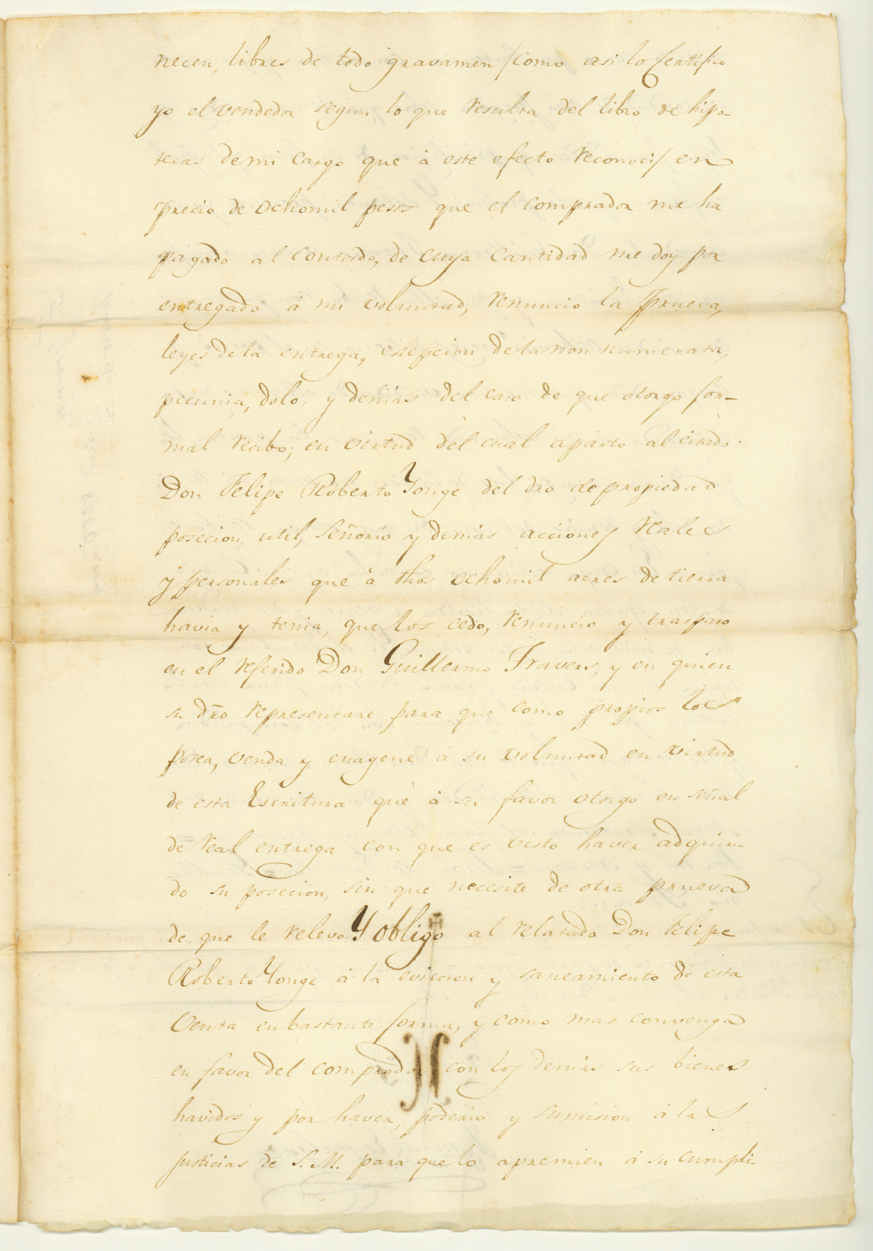 necen, libres de todo gravamen (como asi lo Certifico
yo el vendedor segun lo que resulta del libro de hipo-
tecas de mi cargo que à este efecto reconoci) en
precio de ochomil pesos que el comprador me ha
pagado al contado, de cuya cantidad me doy por
entregado á mi voluntad, renuncio la prueva,
leyes de la entrega, esepcion de la non numerata,
pecunia, dolo, y demas del caso de que otorgo for-
mal recibo; en virtud del cual aparto al citado
Don Felipe Roberto Yonge del dro de propiedad
posecion, util, señorio y demas acciones reales
y personales que à dhos ochomil acres de tierra
havia y tenia, que los cedo, renuncio y traspaso
en el referido Don Guillermo Travers, y en quien
su dro representare para que como propios los
posea, venda y enagene à su voluntad en virtud
de esta Escritura que à su favor otorgo en señal
de real entrega con que es visto haver adquiri-
do su posecion, sin que necesite de otra prueva
de que le relevo. Y obligo al relatado Don Felipe
Roberto Yonge á la eviccion y saneamiento de esta
Venta en bastante forma, y como mas convenga
en favor del comprador con los demas sus bienes
havidos y por haver, poderio y sumision á las
justicias de S.M. para que lo apremien á su cumpli-